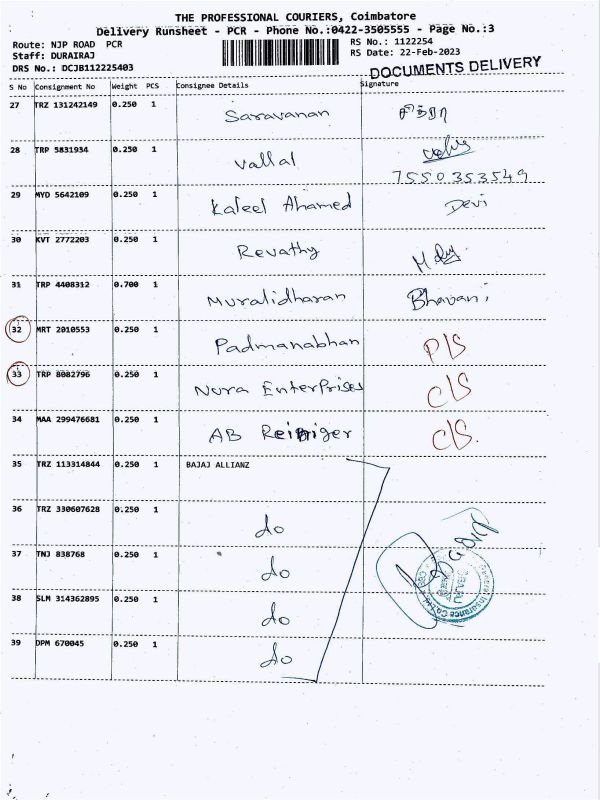 THE PROFESSIONAL COURIERS, Coimbatore
Delivery Runsheet - PCR - Phone No.:0422-3505555 - Page No.:3
Route: NJP ROAD PCR
RS No.: 1122254
Staff: DURAIRAJ
RS Date: 22-Feb-2023
DRS No.: DCJB112225403
DOCUMENTS DELIVERY
S No Consignment No Weight PCS Consignee Details Signature
27 TRZ 131242149 0.250 1 Saravanan
28 TRP 5831934 0.250 1 Vallal
7550353549
29 MYD 5642109 0.250 1 Kaleel Ahamed Devi
30 KVT 2772203 0.250 1 Revathy
31 TRP 4408312 0.700 1 Muralidharan Bhavani
32 MRT 2010553 0.250 1 Padmanabhan P/S
33 TRP 8082796 0.250 1 Nura Enterprises C/S
34 MAA 299476681 0.250 1 AB C/S.
35 TRZ 113314844 0.250 1 BAJAJ ALLIANZ
36 TRZ 330607628 0.250 1 do
37 TNJ 838768 0.250 1 do
38 SLM 314362895 0.250 1 do
39 DPM 670045 0.250 1 do